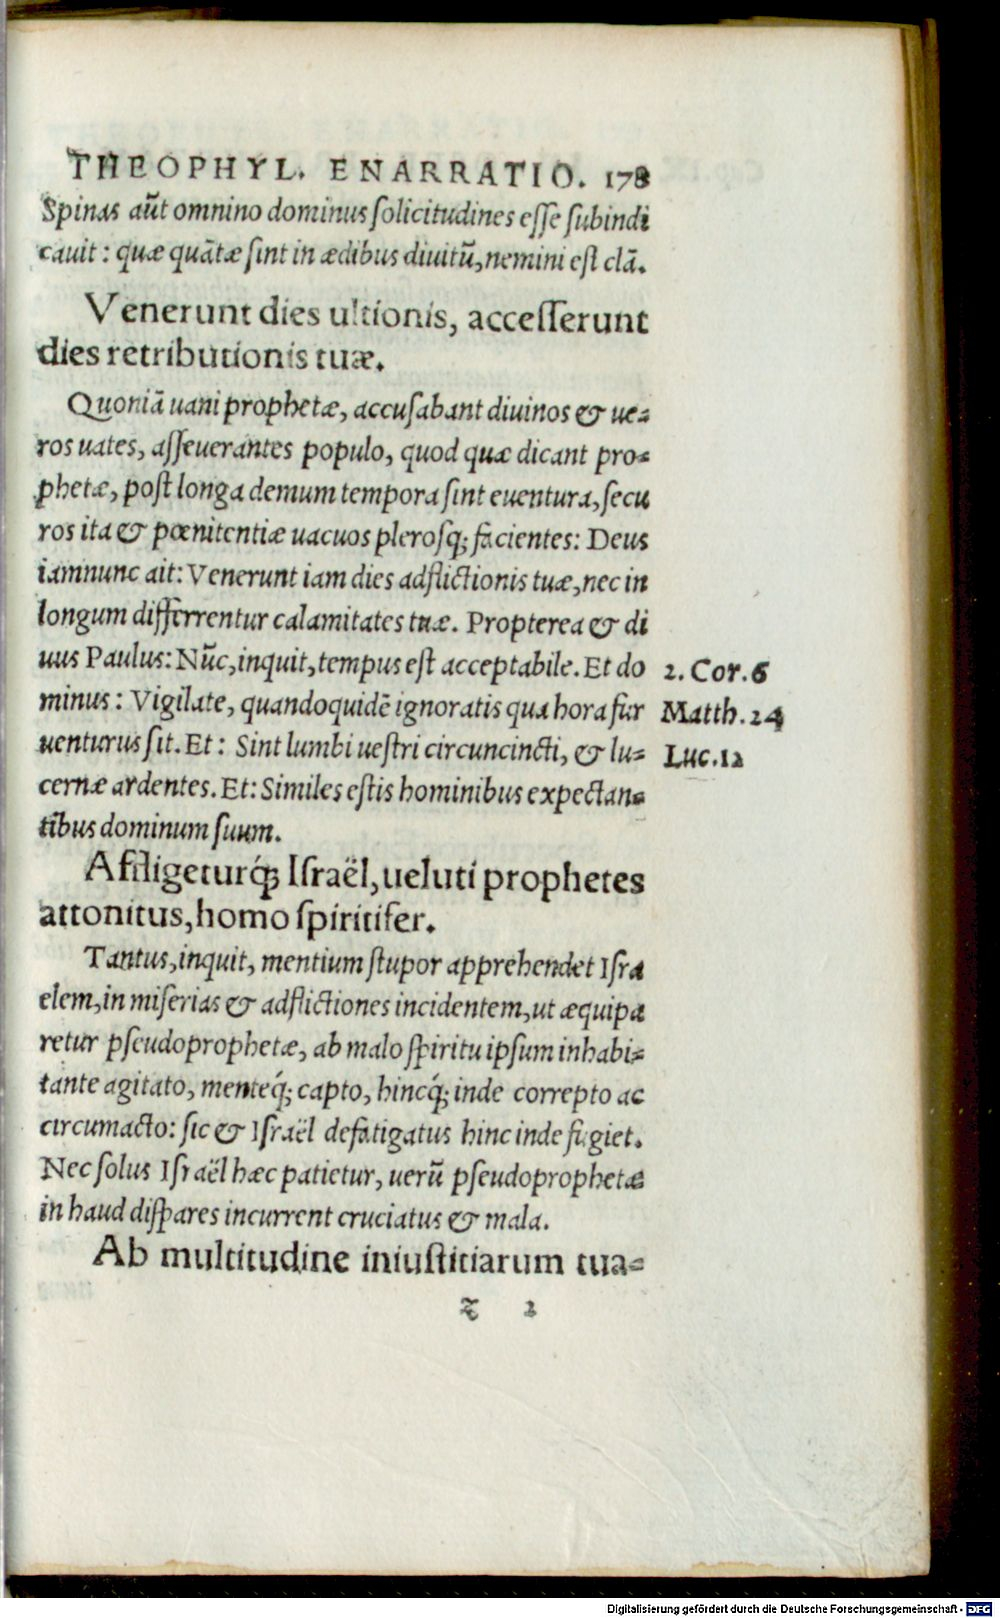 THEOPHYL. ENARRATIO. 178
Spinas aūt omnino dominus ſolicitudines eſſe ſubindi
cauit: quæ quātæ ſint in ædibus diuitū, nemini eſt clā.
Venerunt dies ultionis, acceſſerunt
dies retributionis tuæ.
Quoniā uani prophetæ, accuſabant diuinos & ue-
ros uates, aſſeuerantes populo, quod quæ dicant pro-
phetæ, poſt longa demum tempora ſint euentura, ſecu
ros ita & pœnitentiæ uacuos pleroſq; facientes: Deus
iamnunc ait: Venerunt iam dies adflictionis tuæ, nec in
longum differrentur calamitates tuæ. Propterea & di
uus Paulus: Nūc, inquit, tempus eſt acceptabile. Et do
2. Cor. 6
minus: Vigilate, quandoquidē ignoratis qua hora fur
Matth. 24
uenturus ſit. Et: Sint lumbi ueſtri circuncincti, & lu-
Luc. 12
cernæ ardentes. Et: Similes eſtis hominibus expectan-
tibus dominum ſuum.
Affligeturq́; Iſraël, ueluti prophetes
attonitus, homo ſpiritifer.
Tantus, inquit, mentium ſtupor apprehendet Iſra
elem, in miſerias & adflictiones incidentem, ut æquipa
retur pſeudoprophetæ, ab malo ſpiritu ipſum inhabi-
tante agitato, menteq́; capto, hincq́; inde correpto ac
circumacto: ſic & Iſraël defatigatus hinc inde fugiet.
Nec ſolus Iſraël hæc patietur, uerū pſeudoprophetæ
in haud diſpares incurrent cruciatus & mala.
Ab multitudine iniuſticiarum tua-
z 2
Digitalisierung gefördert durch die Deutsche Forschungsgemeinschaft - DFG